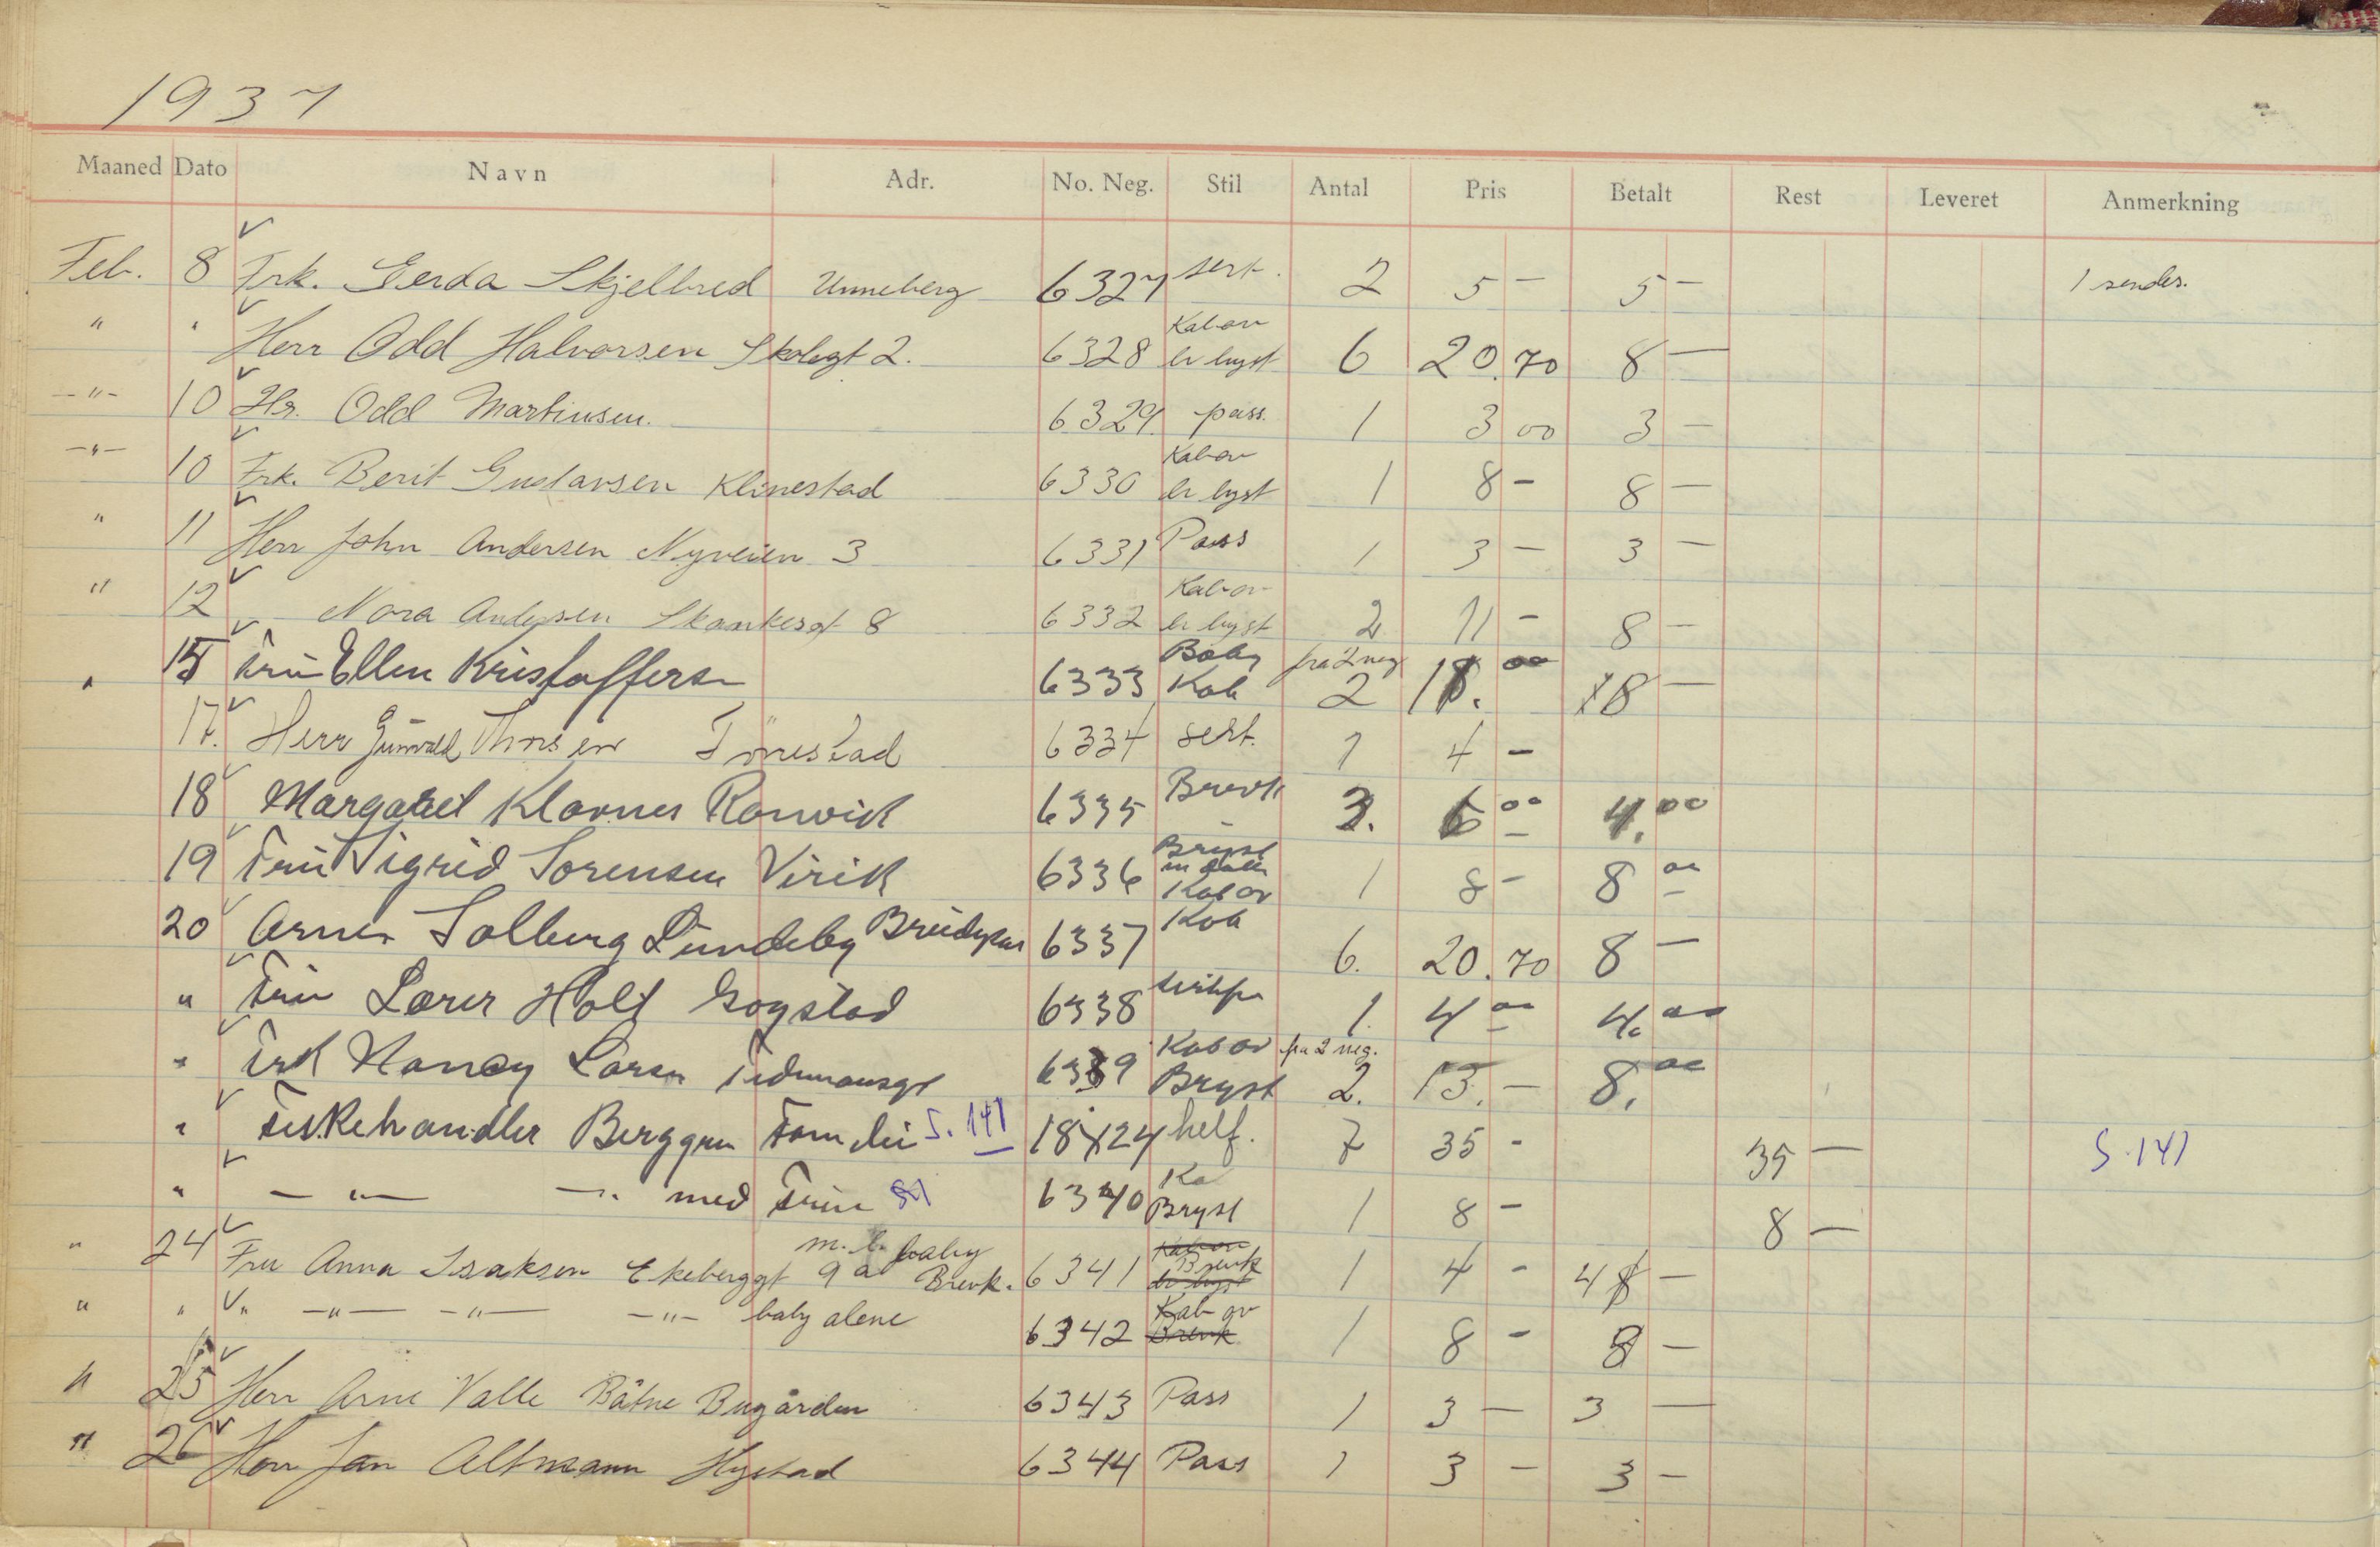 1937
Maaned Dato Navn Adr. No. Neg. Stil Antal Pris Betalt Rest Leveret Anmerkning
Feb. 8 Frk. Gerda Skjelbred Unneberg 6327 sert. 2 5 — 5 — 1 sendes.
" " Herr Odd Halvorsen Skolegt 2. 6328 Kabov br lyst 6 20.70 8 —
—"— 10 Hr. Odd Martinsen. 6329. pass. 1 3 00 3 —
—"— 10 Frk. Berit Gustavsen Klinestad 6330 Kabov br lyst 1 8 — 8 —
" 11 Herr John Andersen Nyveien 3 6331 Pass 1 3 — 3 —
" 12 " Nora Andersen 8 6332 Kabov br lyst 2 11 — 8 —
" 15 Fru Ellen Kristoffersen 6333 Baby Kab fra 2 neg 2 18.00 18 —
17. Herr Gunvald Thorsen 6334 sert. 1 4 —
18 Margaret Klavnes Ranvik 6335 Brevk 3. 6 00 4.00
19 Fru Sigrid Sorensen Virik 6336 Bryst Kabov 1 8 — 8 00
20 Arne Solberg Lundeby Brudepar 6337 Kab 6. 20.70 8 —
" Fru Lærer Holt Gogstad 6338 1. 4 00 4.00
" Frk Nancy Larsen 6339 Kabov Bryst fra 2 neg. 2. 13. — 8.00
" Fiskehandler Berggren Familie S. 141 18x24 helf. 7 35 - 35 — S. 141
" — " — — " med Fru 6340 Ka Bryst 1 8 — 8 —
" 24 Fru Anna Isaksen Ekeberggt 9a m. baby Brevk. 6341 Kabov Brevk br lyst 1 4 - 4 —
" " " —"— —"— —"— baby alene 6342 Kab ov Brevk 1 8 - 8 —
" 25 Herr Arne Valle Båtne Bugården 6343 Pass 1 3 — 3 —
" 26 Herr Jan Altmann Hystad 6344 Pass 1 3 — 3 —